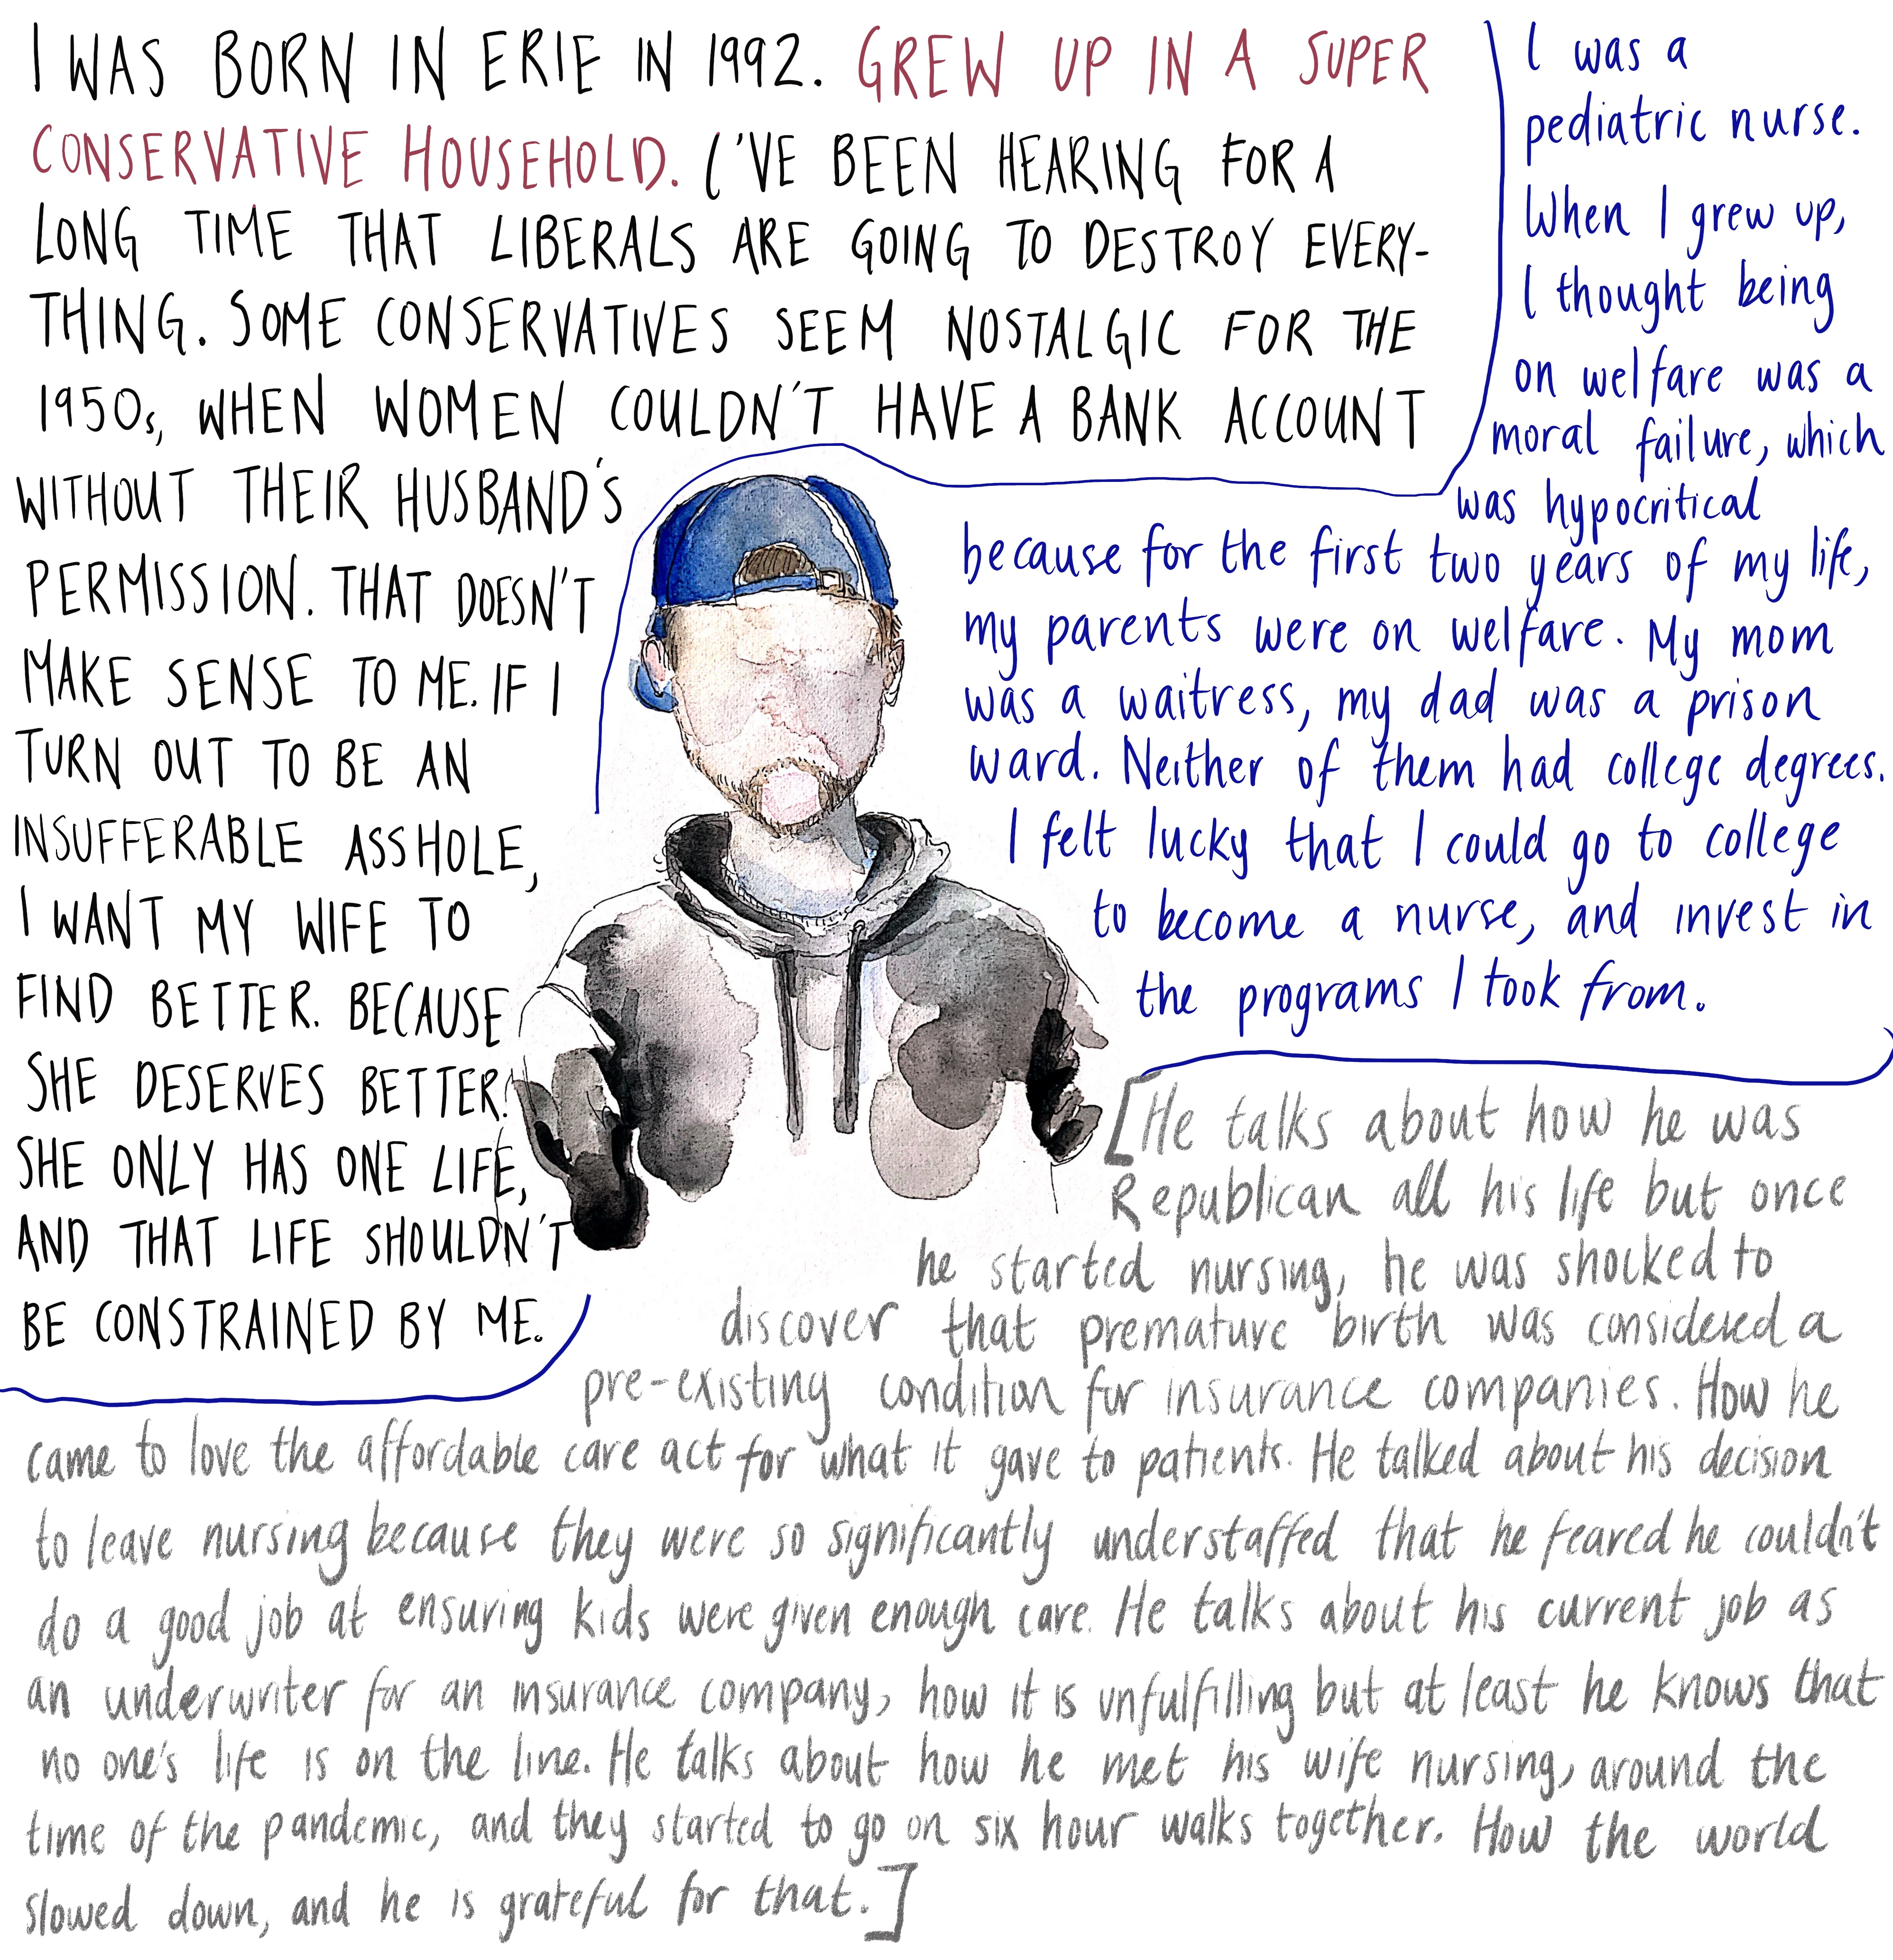 I WAS BORN IN ERIE IN 1992. GREW UP IN A SUPER
CONSERVATIVE HOUSEHOLD. I'VE BEEN HEARING FOR A
LONG TIME THAT LIBERALS ARE GOING TO DESTROY EVERY-
THING. SOME CONSERVATIVES SEEM NOSTALGIC FOR THE
1950s, WHEN WOMEN COULDN'T HAVE A BANK ACCOUNT
WITHOUT THEIR HUSBAND'S
PERMISSION. THAT DOESN'T
MAKE SENSE TO ME. IF I
TURN OUT TO BE AN
INSUFFERABLE ASSHOLE,
I WANT MY WIFE TO
FIND BETTER. BECAUSE
SHE DESERVES BETTER!
SHE ONLY HAS ONE LIFE,
AND THAT LIFE SHOULDN'T
BE CONSTRAINED BY ME.
I was a
pediatric nurse.
When I grew up,
I thought being
on welfare was a
moral failure, which
was hypocritical
because for the first two years of my life,
my parents were on welfare. My mom
was a waitress, my dad was a prison
ward. Neither of them had college degrees.
I felt lucky that I could go to college
to become a nurse, and invest in
the programs I took from.
[He talks about how he was
Republican all his life but once
he started nursing, he was shocked to
discover that premature birth was considered a
pre-existing condition for insurance companies. How he
came to love the affordable care act for what it gave to patients. He talked about his decision
to leave nursing because they were so significantly understaffed that he feared he couldn't
do a good job at ensuring kids were given enough care. He talks about his current job as
an underwriter for an insurance company, how it is unfulfilling but at least he knows that
no one's life is on the line. He talks about how he met his wife nursing, around the
time of the pandemic, and they started to go on six hour walks together. How the world
slowed down, and he is grateful for that.]